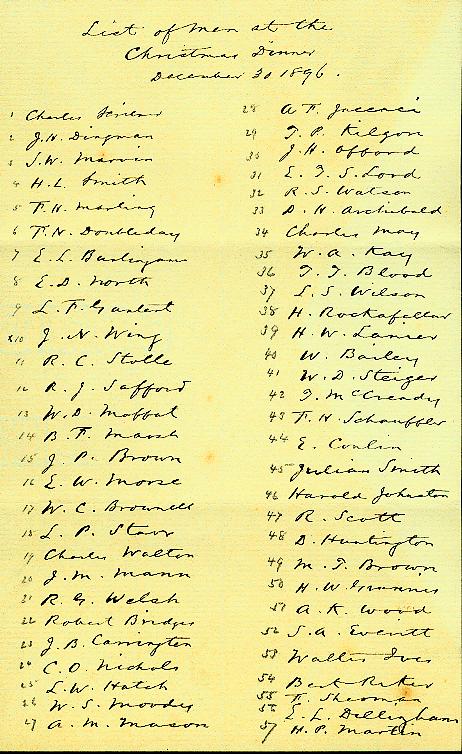 List of men at the
Christmas Dinner
December 30 1896.
1 Charles
2 J.H. Dingman
3 S.W. Marvin
4 H.L. Smith
5 F.H. Marling
6 F.N. Doubleday
7 E.L. Burlingame
8 E.D. North
9 L.F.
x10 J.N. Wing
11 R.C. Stolle
12 R.J. Safford
13 W.D. Moffat
14 B.F. Marsh
15 J.P. Brown
16 E.W. Morse
17 W.C. Brownell
18 L.P. Starr
19 Charles Walton
20 J.M. Mann
21 R.G. Welsh
22 Robert Bridges
23 J.B. Carrington
24 C.O. Nichols
25 L.W. Hatch
26 W.S. Moody
27 A.M. Mason
28 A.F. Jaccaci
29 T.P. Kilgon
30 J.H. Offord
31 E.T.S. Lord
32 R.S. Watson
33 D.H. Archibald
34 Charles May
35 W.A. Kay
36 T.T. Blood
37 L.S. Wilson
38 H. Rockafellar
39 H.W. Lanier
40 W. Bailey
41 W.D. Steiger
42 J. McCready
43 F.H. Schauffler
44 E. Conlin
45 Julian Smith
46 Harold Johnston
47 R. Scott
48 D. Huntington
49 M.T. Brown
50 H.W.
51 A.K. Wood
52 S.A. Everitt
53 Walter Ives
54 Bert Baker
55 F. Sherman
56 E.L. Dillingham
57 H.P. Martin